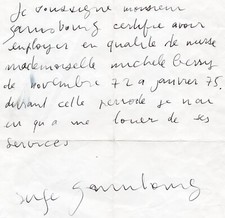 Je soussigne monsieur
gainsbourg certifie avoir
employer en qualite de nurse
mademoiselle michele
de novembre 72 a janvier 75.
durant cette periode je n'ai
eu qu'a me louer de ses
services
serge gainsbourg